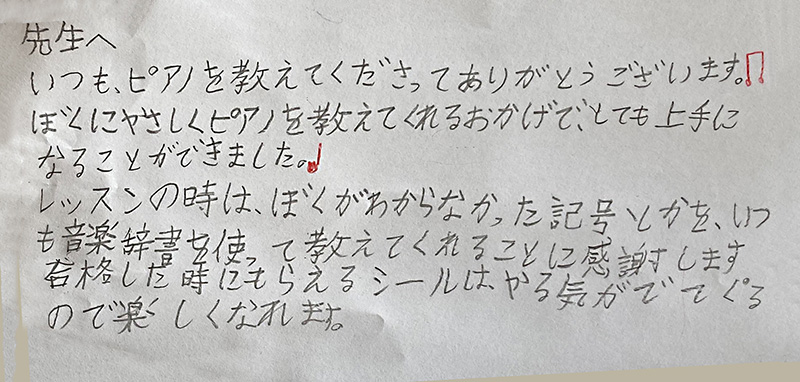 先生へ
いつも、ピアノを教えてくださってありがとうございます。♫
ぼくにやさしくピアノを教えてくれるおかげで、とても上手に
なることができました。♩
レッスンの時は、ぼくがわからなかった記号とかを、いつ
も音楽辞書を使って教えてくれることに感謝します
合格した時にもらえるシールは、やる気がでてくる
ので楽しくなれます。